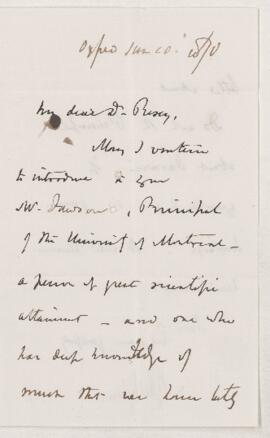 Oxford Jan 20. 1870
My dear Dr Pusey,
May I venture
to introduce to you
Mr. Dawson, Principal
of the University of Montreal -
a person of great scientific
attainment - and one who
has deep knowledge of
much that we have lately